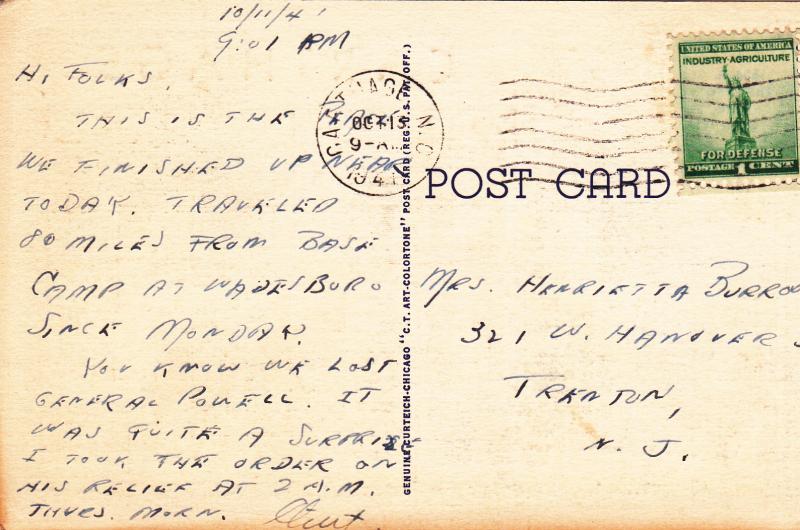 10/11/41
9:01 PM
HI FOLKS,
THIS IS THE
WE FINISHED UP NEAR
TODAY. TRAVELED
80 MILES FROM BASE
CAMP AT WADESBORO
SINCE MONDAY.
YOU KNOW WE LOST
GENERAL POWELL. IT
WAS QUITE A SURPRISE
I TOOK THE ORDER ON
HIS RELIEF AT 2 A.M.
THURS. MORN.
GENUINE CURTEICH-CHICAGO "C.T. ART-COLORTONE" POST CARD (REG. U.S. PAT. OFF.)
CARTHAGE N.C.
OCT 13
9-A
1941
UNITED STATES OF AMERICA
INDUSTRY-AGRICULTURE
FOR DEFENSE
POSTAGE 1 CENT
POST CARD
MRS. HENRIETTA BURRO
321 W. HANOVER S
TRENTON,
N. J.